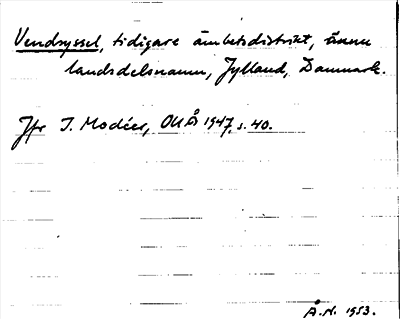 Vendsyssel, tidigare ämbetsdistrikt, ännu
landsdelsnamn, Jylland, Danmark.
Jfr I. Modéer, OUÅ 1947, s. 40.
Å.H. 1953.